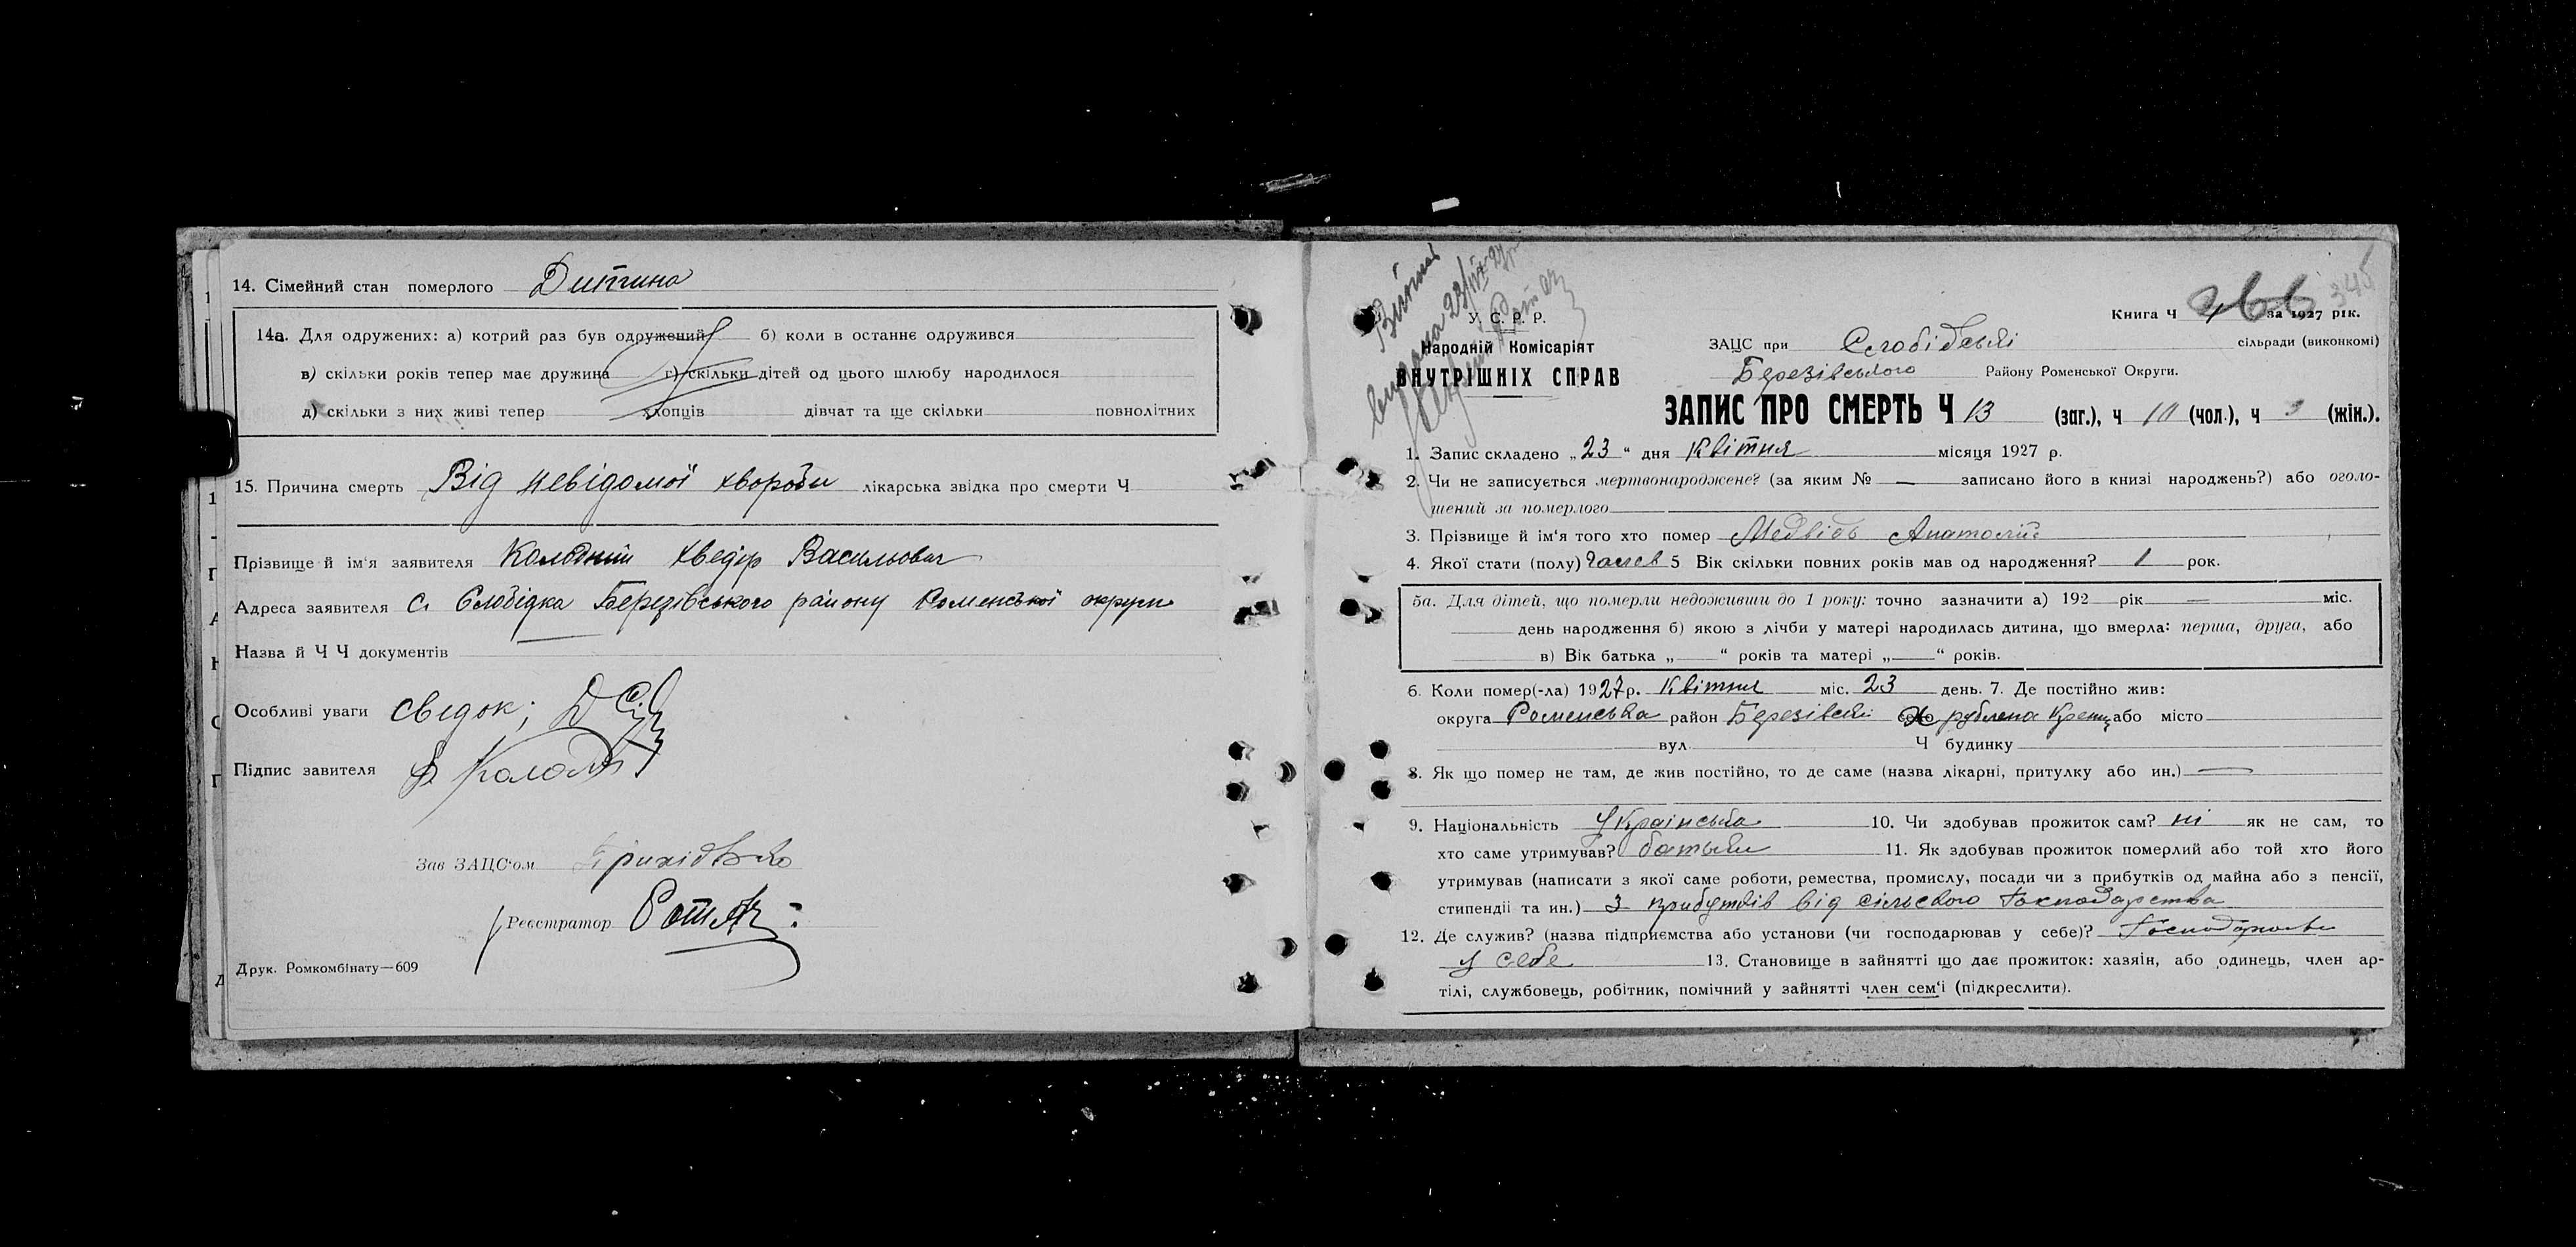 14. Сімейний стан померлого Дитина
14а. Для одружених: а) котрий раз був одружений б) коли в останнє одружився
в) скільки років тепер має дружина г) скільки дітей од цього шлюбу народилося
д) скільки з них живі тепер хлопців дівчат та ще скільки повнолітних
15. Причина смерть Від невідомої хвороби лікарська звідка про смерти Ч
Прізвище й ім'я заявителя Хведір Васильович
Адреса заявителя с. Слобідка Березівського району Роменської округи
Назва й Ч Ч документів
Особливі уваги сведок;
Підпис завителя
Зав ЗАЦС'ом
Реєстратор
Друк. Ромкомбінату—609
345
Книга Ч за 1927 рік.
У. С. Р. Р.
Народній Комісаріят
ВНУТРІШНІХ СПРАВ
ЗАЦС при Слобідській сільради (виконкомі)
Березівського Району Роменської Округи.
ЗАПИС ПРО СМЕРТЬ Ч 13 (заг.), ч 10 (чол.), ч 3 (жін.).
1. Запис складено „23“ дня Квітня місяця 1927 р.
2. Чи не записується мертвонароджене? (за яким № — записано його в книзі народжень?) або оголо-
шений за померлого
3. Прізвище й ім'я того хто помер Медвідь Анатолій
4. Якої стати (полу) 5 Вік скільки повних років мав од народження? 1 рок.
5а. Для дітей, що померли недоживши до 1 року: точно зазначити а) 192 рік — міс.
день народження б) якою з лічби у матері народилась дитина, що вмерла: перша, друга, або
в) Вік батька „—“ років та матері „—“ років.
6. Коли помер(-ла) 1927 р. Квітня міс. 23 день. 7. Де постійно жив:
округа Роменська район Березівський або місто
вул. Ч будинку
8. Як що помер не там, де жив постійно, то де саме (назва лікарні, притулку або ин.) —
9. Національність Українська 10. Чи здобував прожиток сам? ні як не сам, то
хто саме утримував? батьки 11. Як здобував прожиток померлий або той хто його
утримував (написати з якої саме роботи, ремества, промислу, посади чи з прибутків од майна або з пенсії,
стипендії та ин.) З прибутків від сільского господарства
12. Де служив? (назва підприємства або установи (чи господарював у себе)?
у себе 13. Становище в зайнятті що дає прожиток: хазяін, або одинець, член ар-
тілі, службовець, робітник, помічний у зайнятті член сем'ї (підкреслити).